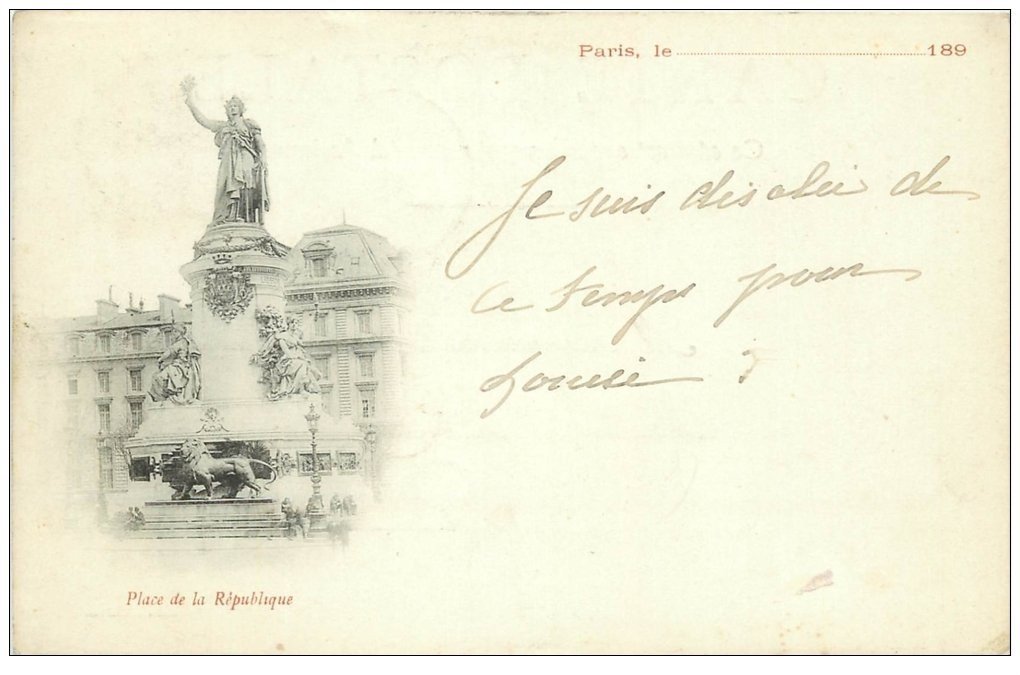 Paris, le 189
Je suis désolée de
ce temps pour
Louise
Place de la République